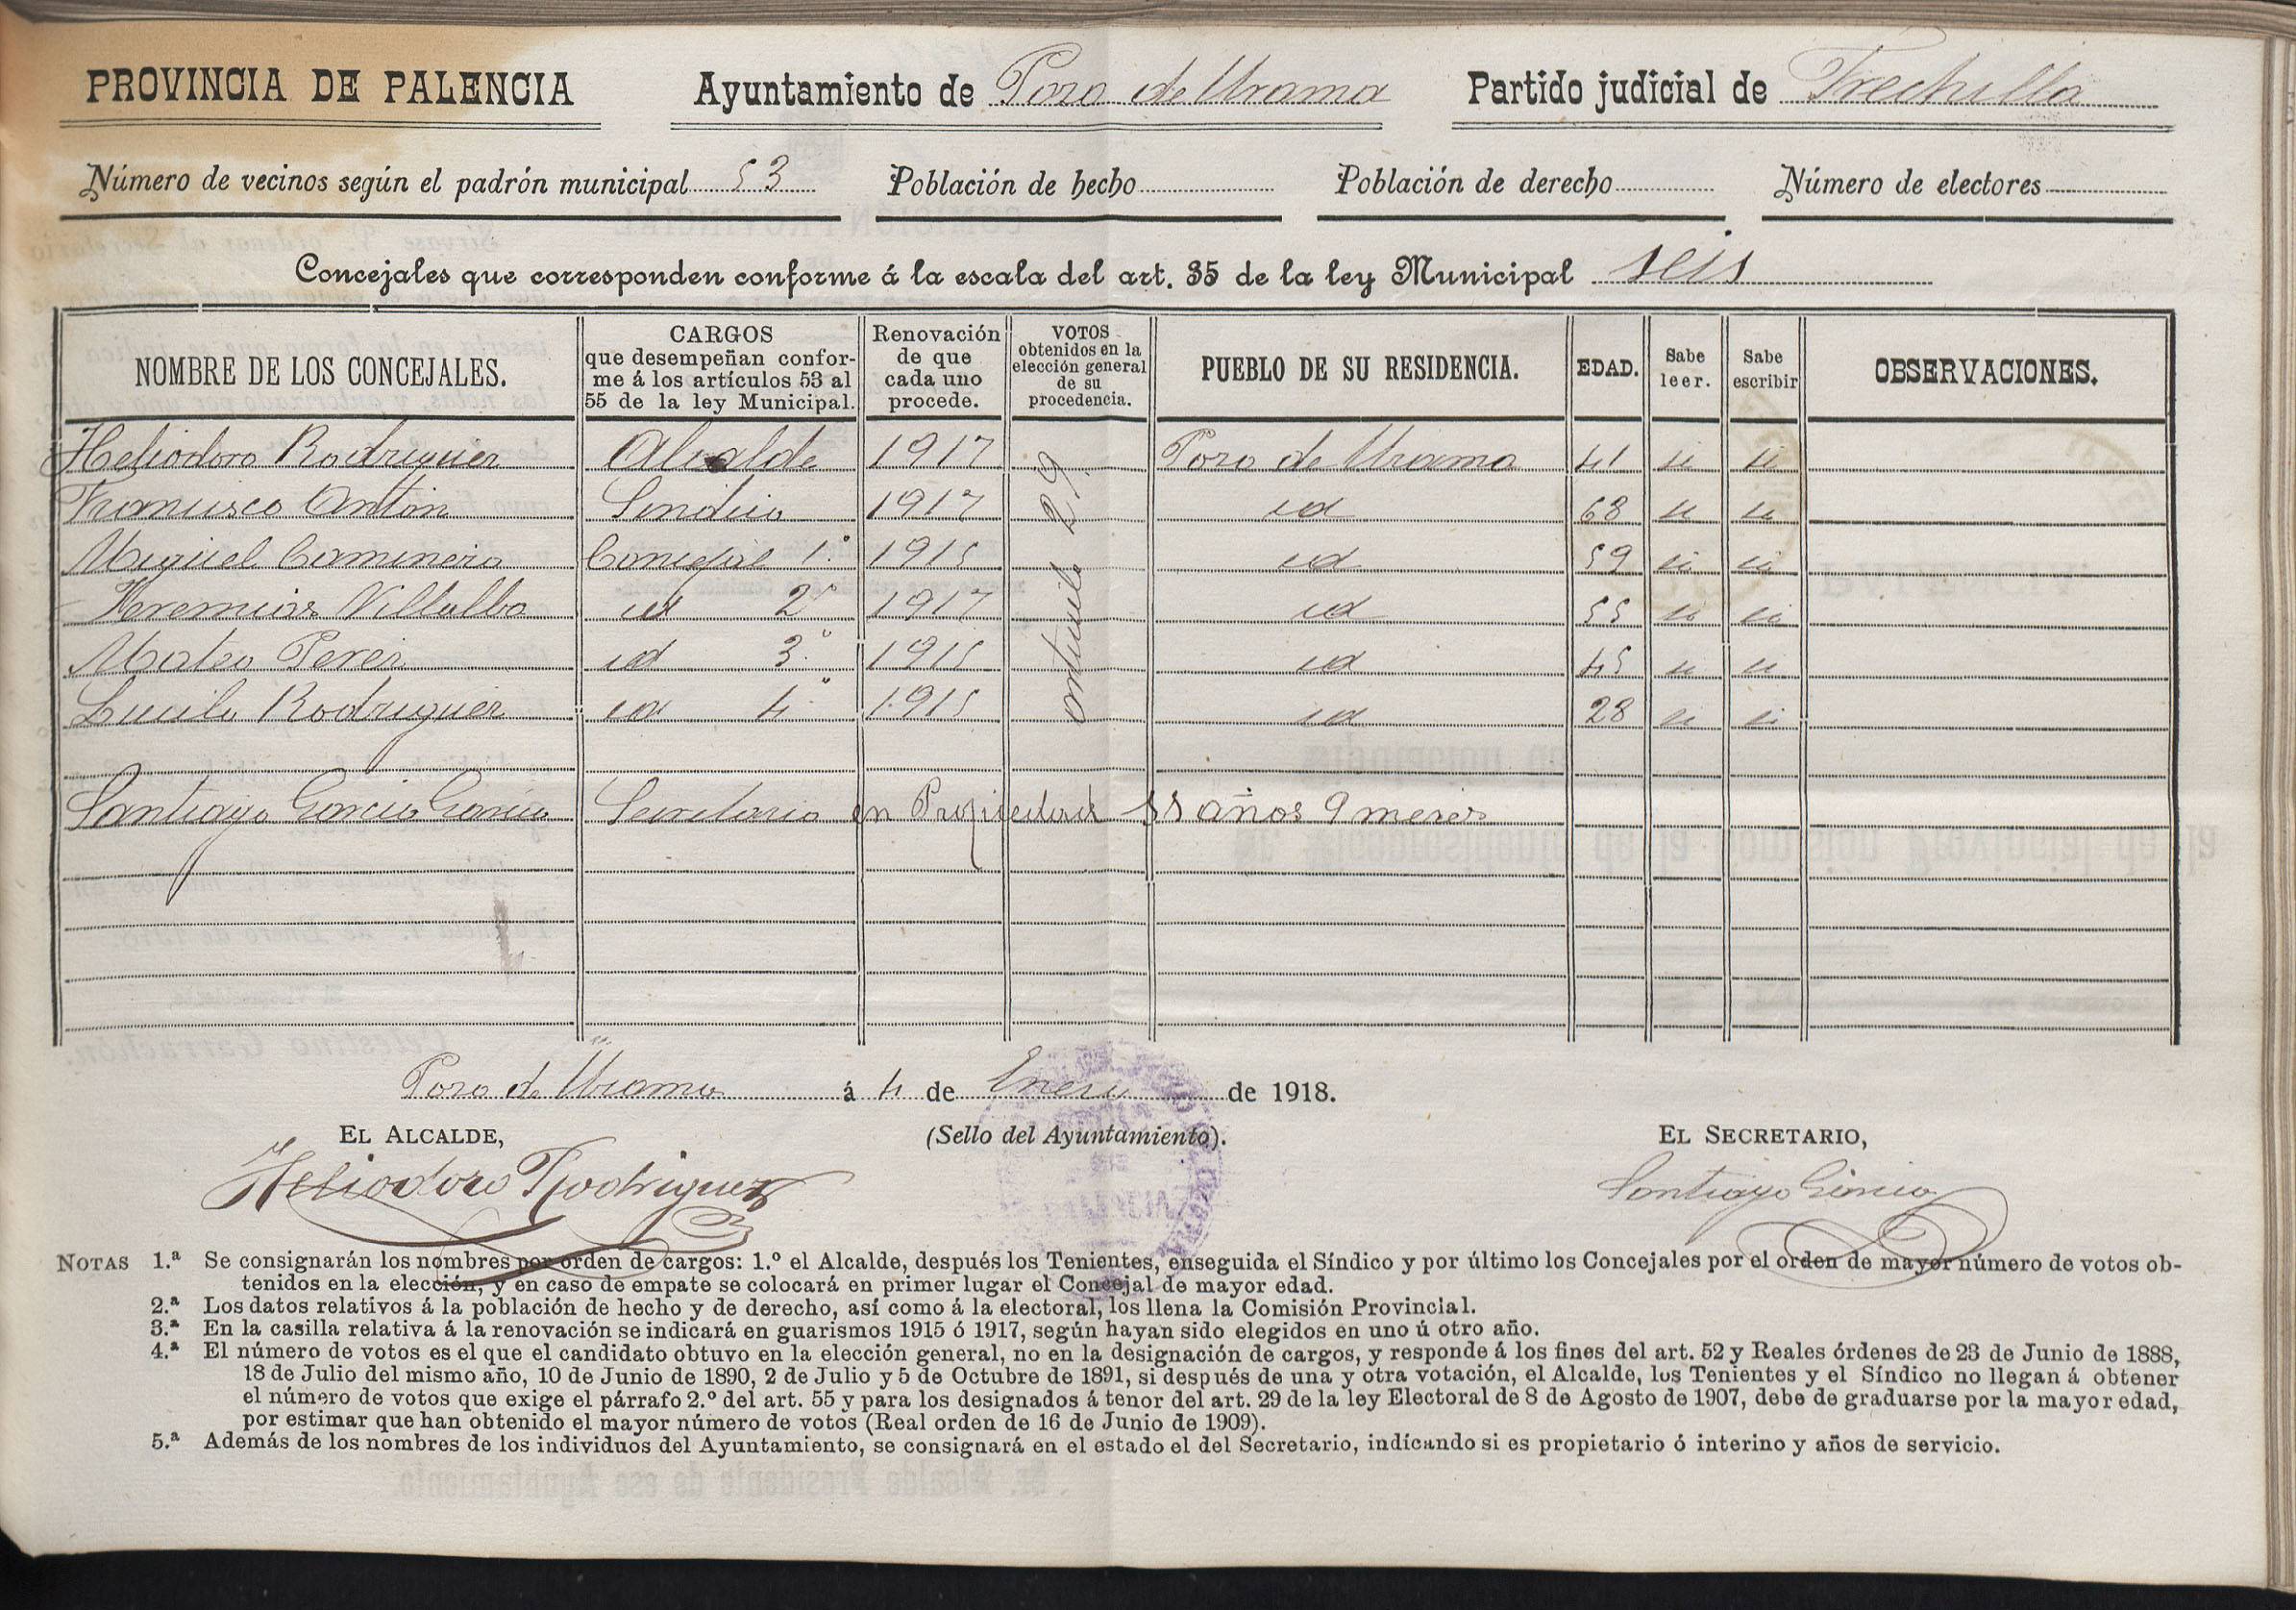 PROVINCIA DE PALENCIA Ayuntamiento de Pozo de Urama Partido judicial de Frechilla
Número de vecinos según el padrón municipal 53 Población de hecho Población de derecho Número de electores
Concejales que corresponden conforme á la escala del art. 35 de la ley Municipal seis
NOMBRE DE LOS CONCEJALES. CARGOS que desempeñan confor- Renovación de que cada uno procede. VOTOS obtenidos en la elección general de su procedencia. PUEBLO DE SU RESIDENCIA. EDAD. Sabe leer. Sabe escribir OBSERVACIONES.
me á los artículos 53 al
55 de la ley Municipal.
Heliodoro Rodriguez Alcalde 1917 Pozo de Urama 41 si si
Francisco Anton Sindico 1917 id 68 si si
Miguel Caminero Concejal 1.º 1915 id 59 si si
Heremias Villalba id 2º 1917 id 55 si si
Mateo Perez id 3.º 1915 id 45 si si
Lucilo Rodriguez id 4º 1915 id 28 si si
articulo 29
Santiago Garcia Garcia Secretario en Propiedad 55 años 9 meses
Pozo de Urama á 4 de Enero de 1918.
EL ALCALDE, (Sello del Ayuntamiento). EL SECRETARIO,
Heliodoro Rodriguez Santiago Garcia
NOTAS 1.ª Se consignarán los nombres por orden de cargos: 1.º el Alcalde, después los Tenientes, enseguida el Síndico y por último los Concejales por el orden de mayor número de votos ob-
tenidos en la elección, y en caso de empate se colocará en primer lugar el Concejal de mayor edad.
2.ª Los datos relativos á la población de hecho y de derecho, así como á la electoral, los llena la Comisión Provincial.
3.ª En la casilla relativa á la renovación se indicará en guarismos 1915 ó 1917, según hayan sido elegidos en uno ú otro año.
4.ª El número de votos es el que el candidato obtuvo en la elección general, no en la designación de cargos, y responde á los fines del art. 52 y Reales órdenes de 23 de Junio de 1888,
18 de Julio del mismo año, 10 de Junio de 1890, 2 de Julio y 5 de Octubre de 1891, si después de una y otra votación, el Alcalde, los Tenientes y el Síndico no llegan á obtener
el número de votos que exige el párrafo 2.º del art. 55 y para los designados á tenor del art. 29 de la ley Electoral de 8 de Agosto de 1907, debe de graduarse por la mayor edad,
por estimar que han obtenido el mayor número de votos (Real orden de 16 de Junio de 1909).
5.ª Además de los nombres de los individuos del Ayuntamiento, se consignará en el estado el del Secretario, indicando si es propietario ó interino y años de servicio.